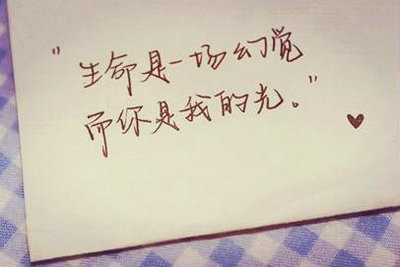 "生命是一场幻觉
而你是我的光。"